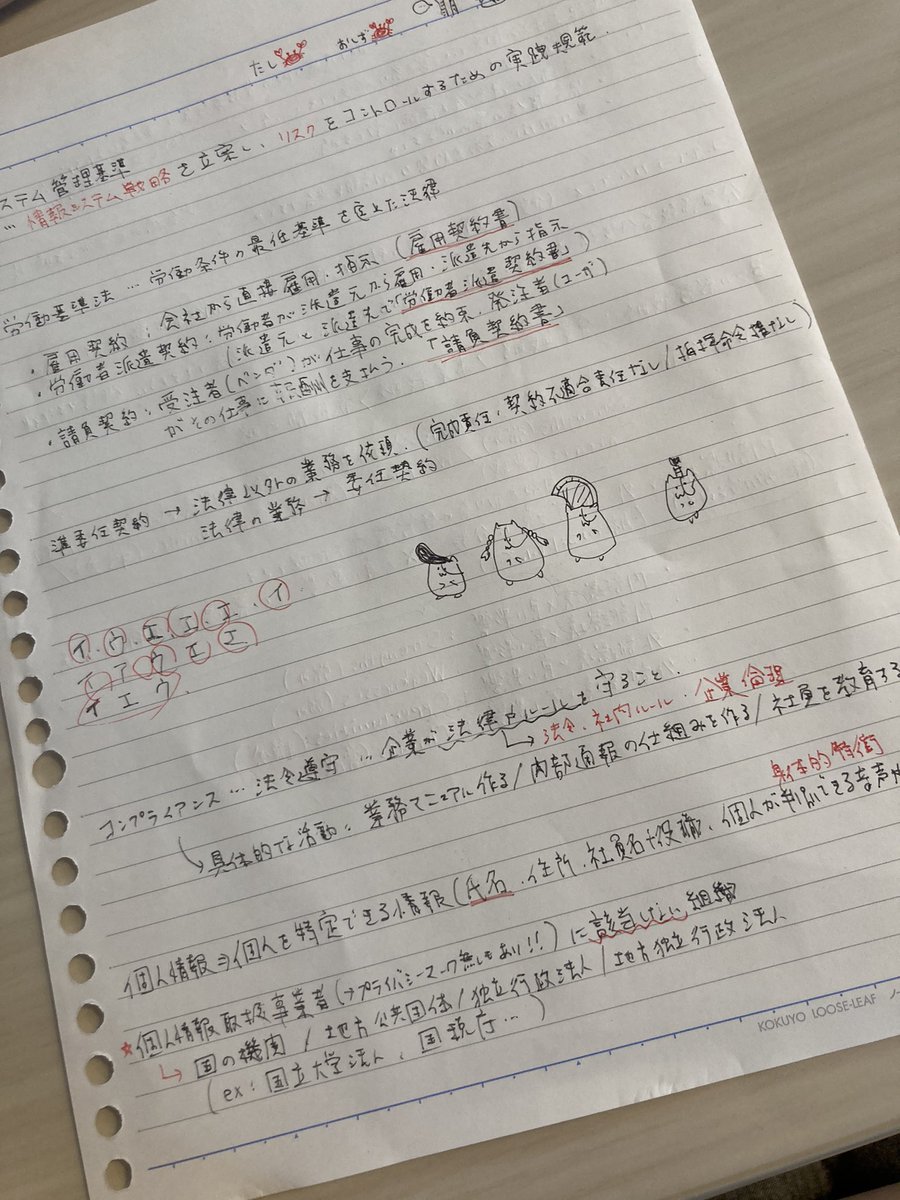 たし おしず
ステム管理基準
… 情報システム戦略を立案し、リスクをコントロールするための実践規範.
労働基準法 … 労働条件の最低基準を定めた法律
・雇用契約：会社から直接雇用・指示 (雇用契約書)
・労働者派遣契約：労働者が派遣元から雇用・派遣先から指示
(派遣元と派遣先で「労働者派遣契約書」
・請負契約：受注者(ベンダ)が仕事の完成を約束. 発注者(ユーザ)
がその仕事に報酬を支払う. 「請負契約書」
準委任契約 → 法律以外の業務を依頼. (完成責任・契約不適合責任なし/指揮命令権なし)
法律の業務 → 委任契約
イ.ウ.エ.エ.エ.イ
アウエエ
イエウ
コンプライアンス … 法令遵守 … 企業が法律やルールを守ること.
↳法令、社内ルール・企業倫理
↘具体的な活動：業務マニュアル作る/内部通報の仕組みを作る/社員を教育する
具体的特徴
個人情報⇒個人を特定できる情報(氏名、住所、社員名+役職、個人が判別できる音声や
★個人情報取扱事業者(→プライバシーマーク無しもあり!!)に該当しない組織
↳国の機関 / 地方公共団体/独立行政法人/地方独立行政法人
(ex：国立大学法人、国税庁…)
KOKUYO LOOSE-LEAF ノー